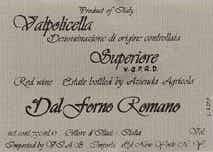 Product of Italy
Valpolicella
Denominazione di origine controllata
Superiore
V.Q.P.R.D.
Red wine Estate bottled by Azienda Agricola
Dal Forno Romano
Cellore d'Illasi Italia Vol:
Imported by Imports New York N.Y.